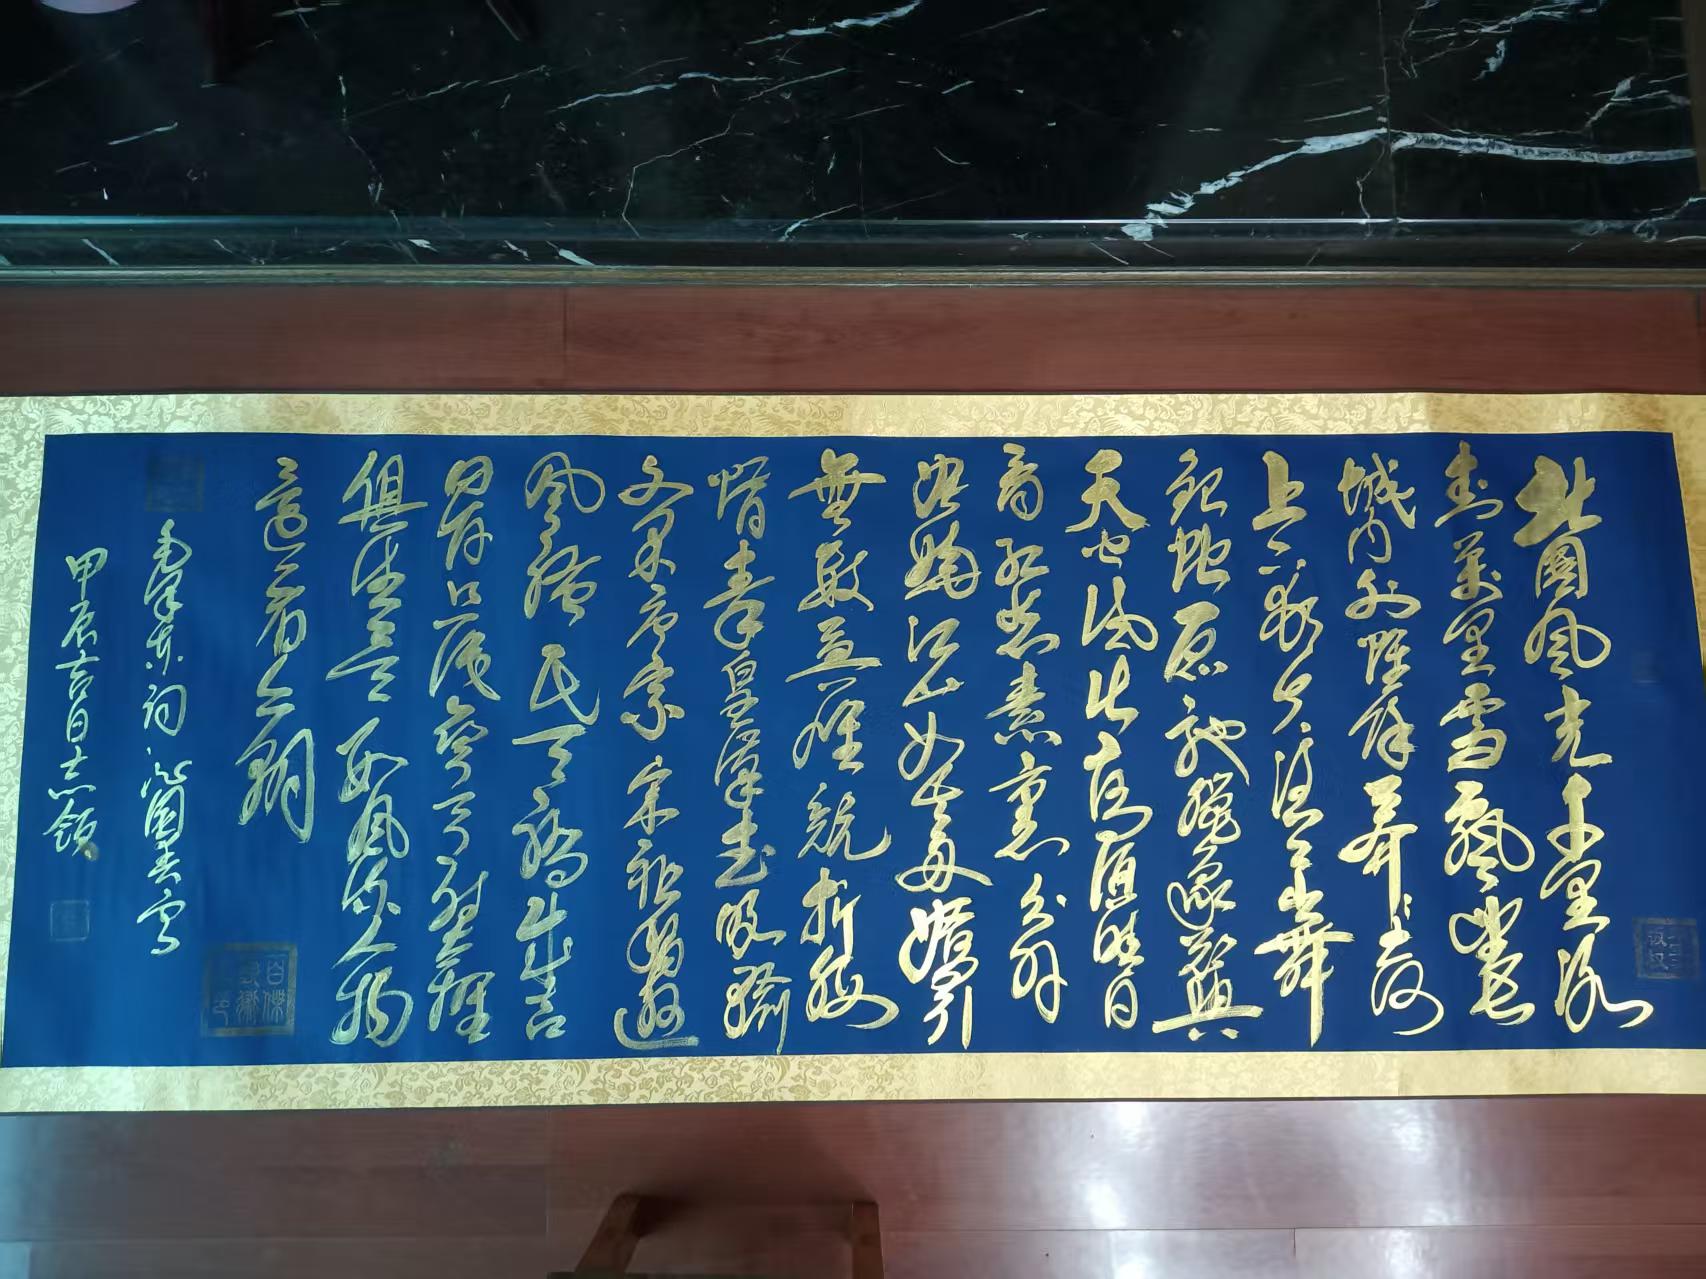 北國風光千里冰
封萬里雪飄望長
城內外惟餘莽莽大河
上下頓失滔滔山舞
銀蛇原馳蠟象欲與
天公試比高須晴日
看紅裝素裹分外
妖嬈江山如此多嬌引
無數英雄競折腰
惜秦皇漢武略輸
文采唐宗宋祖稍遜
風騷一代天驕成吉
思汗只識彎弓射大雕
俱往矣數風流人物
還看今朝
毛澤東詞沁園春雪
甲辰吉日志